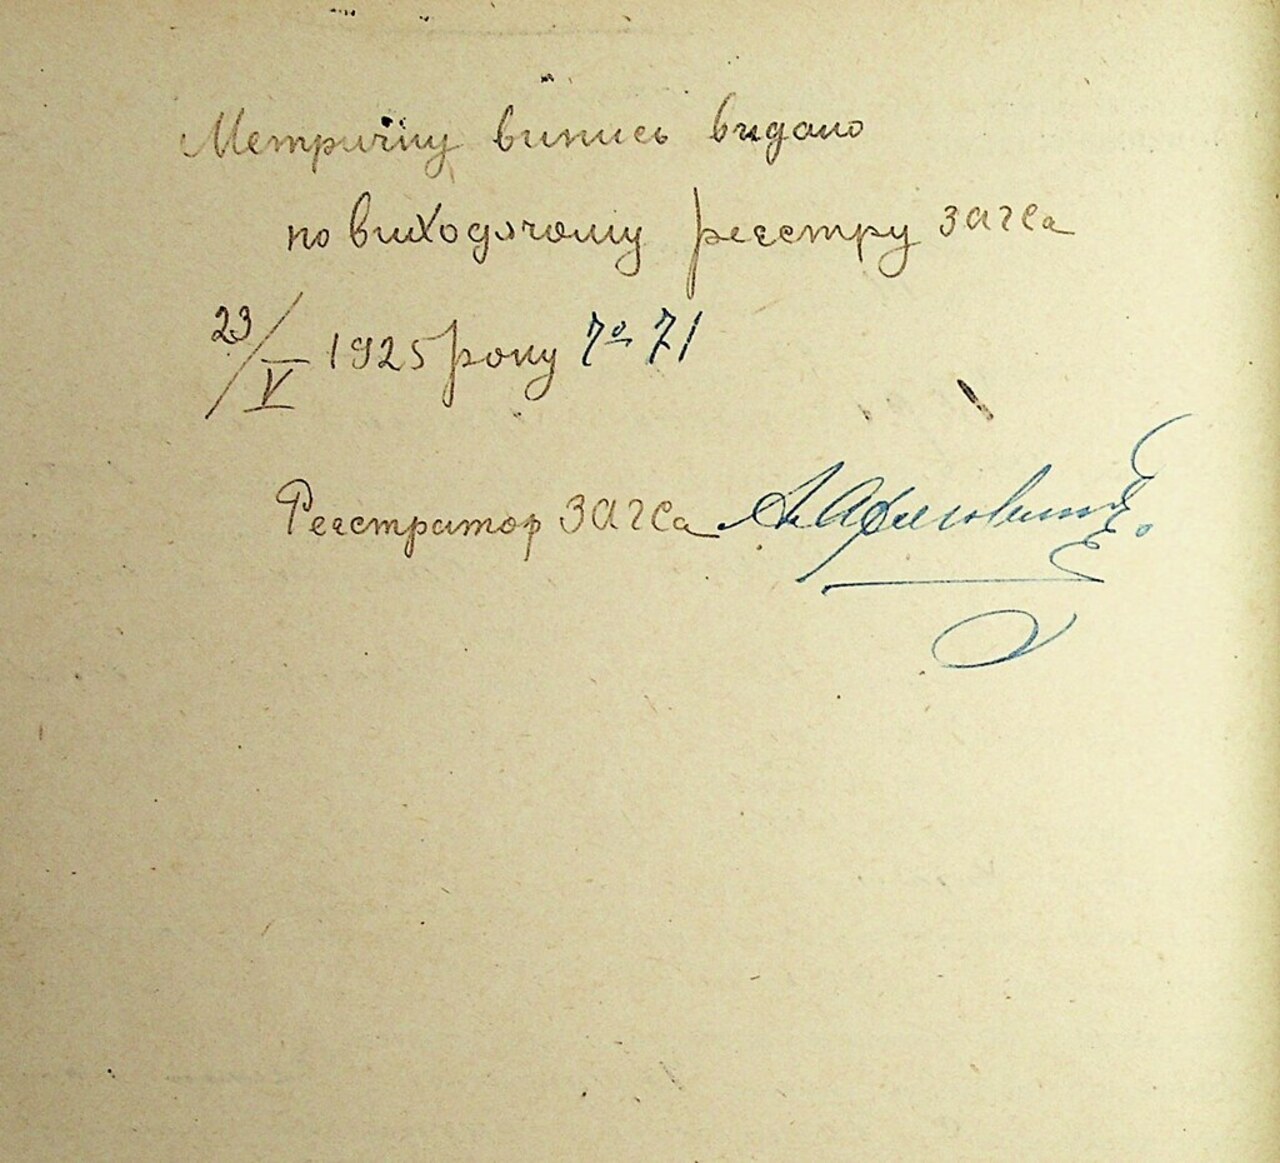 Метричну випись видано
по виходячому реєстру загса
23/V 1925 року № 71
Реєстратор загса